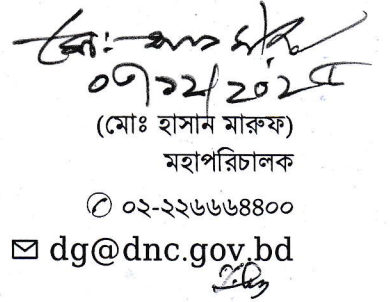 ০৩/১২/২০২৫
(মোঃ হাসান মারুফ)
মহাপরিচালক
০২-২২৬৬৬৪৪০০
dg@dnc.gov.bd